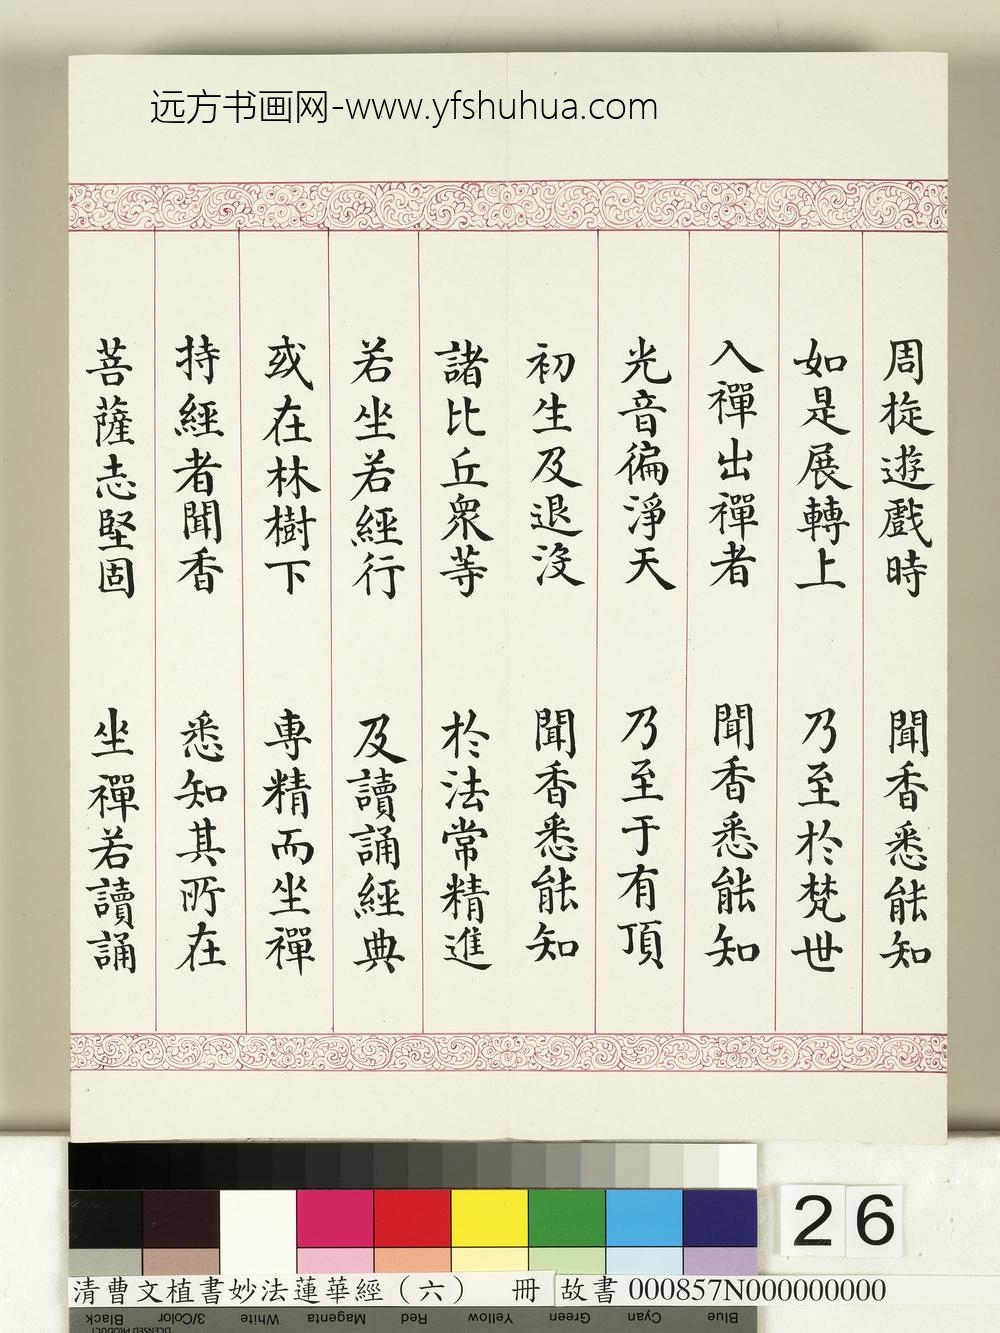 远方书画网-www.yfshuhua.com
周旋遊戲時 聞香悉能知
如是展轉上 乃至於梵世
入禪出禪者 聞香悉能知
光音徧淨天 乃至于有頂
初生及退没 聞香悉能知
諸比丘眾等 於法常精進
若坐若經行 及讀誦經典
或在林樹下 專精而坐禪
持經者聞香 悉知其所在
菩薩志堅固 坐禪若讀誦
26
清曹文植書妙法蓮華經（六） 冊 故書 000857N000000000
Black 3/Color White Magenta Red Yellow Green Cyan Blue
LICENSED PRODUCT